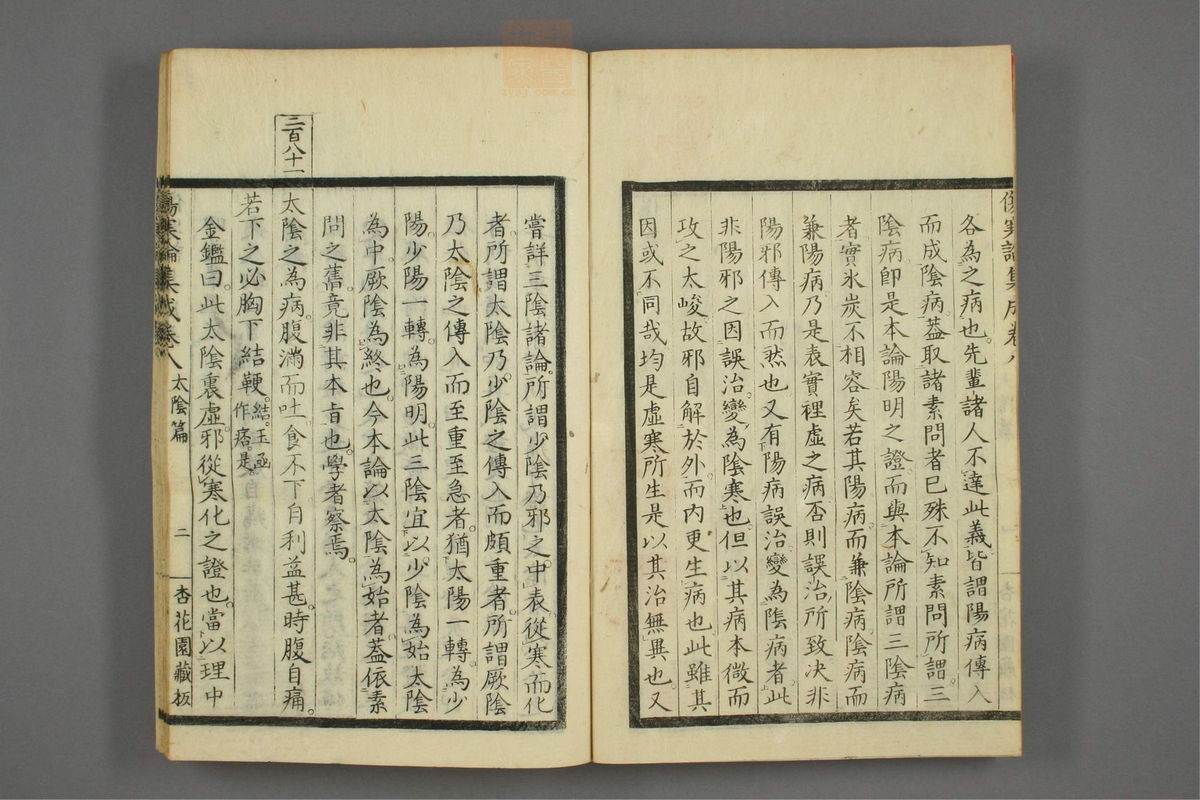 傷寒論集成卷八
各為之病也。先輩諸人不達此義皆謂陽病傳入
而成陰病。蓋取諸素問者已殊不知素問所謂三
陰病卽是本論陽明之證。而與本論所謂三陰病
者實氷炭不相容矣若其陽病而兼陰病陰病而
兼陽病乃是表實裡虛之病否則誤治所致决非
陽邪傳入而然也又有陽病誤治變為陰病者此
非陽邪之因誤治變為陰寒也但以其病本微而
攻之太峻故邪自解於外而內更生病也此雖其
因或不同哉均是虛寒所生是以其治無異也。又
嘗詳三陰諸論。所謂少陰乃邪之中表從寒而化
者。所謂太陰乃少陰之傳入而頗重者。所謂厥陰
乃太陰之傳入而至重至急者。猶太陽一轉為少
陽。少陽一轉為陽明。此三陰宜以少陰為始太陰
為中。厥陰為終也。今本論以太陰為始者蓋依素
問之舊。竟非其本旨也。學者察焉。
三百八十一
太陰之為病。腹滿而吐。食不下。自利益甚。時腹自痛。
若下之必胸下結鞕。結。玉函作痞。是
金鑑曰。此太陰裏虛。邪從寒化之證也。當以理中
傷寒論集成卷八 太陰篇 二 杏花園藏板